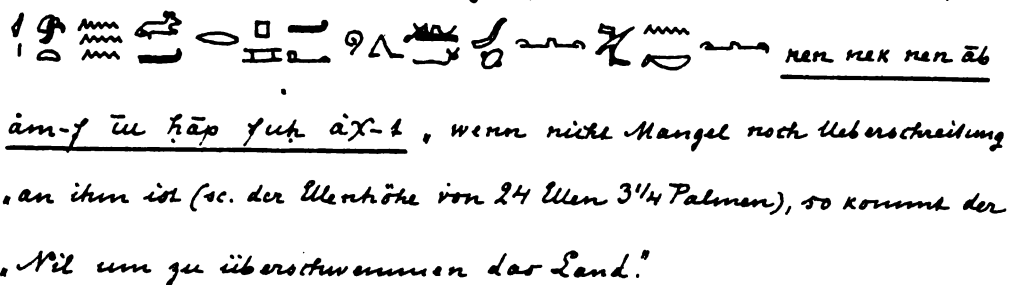 nen nek nen āb
ȧm-f īu ḥāp fuḥ ȧχ-t „wenn nicht Mangel noch Ueberschreitung
„an ihm ist (sc. der Ellenhöhe von 24 Ellen 3 1/4 Palmen), so kommt der
„Nil um zu überschwemmen das Land."